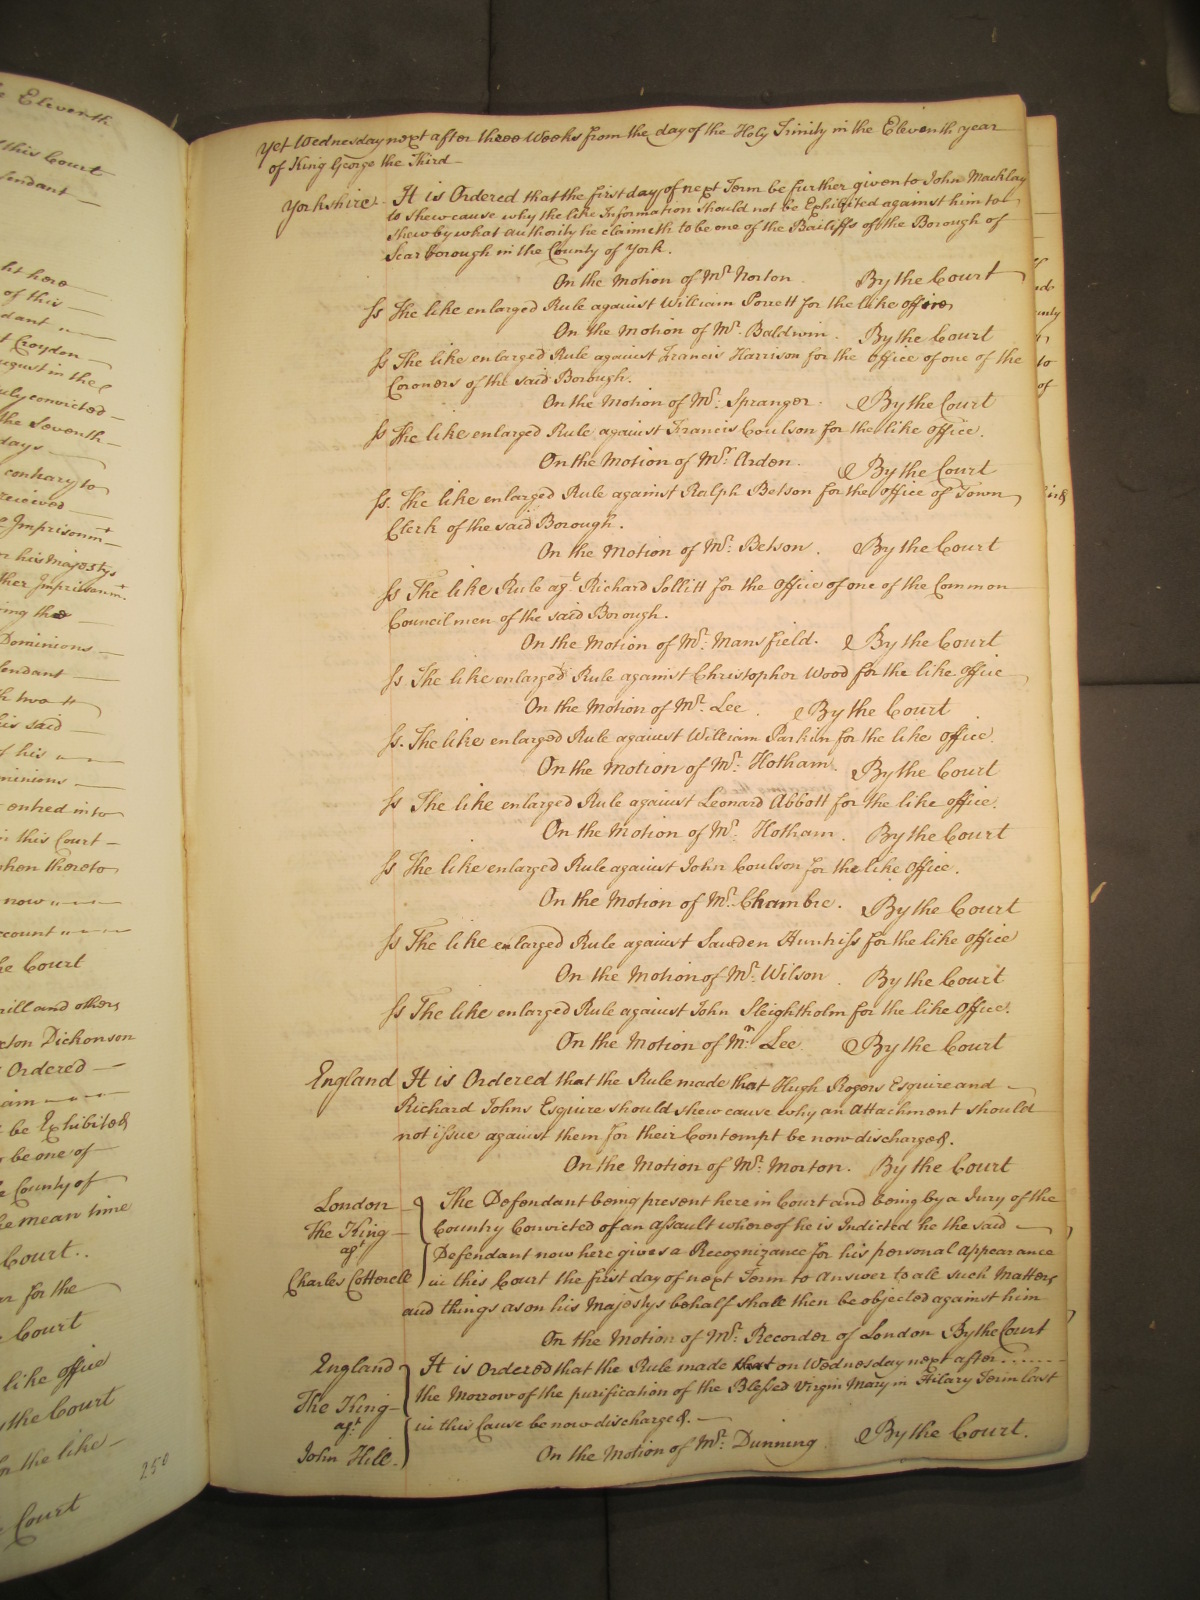 e Eleventh
this Court
fendant
ht here
of this
dant
t Croydon
ugust in the
uly convicted
the Seventh
days
contrary to
received
e Imprisonmt
or his Majestys
ther Imprisonmt
ring the
Dominions
fendant
h two
his said
f his
minions
entred into
in this Court
when thereto
now
ccount
he Court
rill and others
cson Dickonson
Ordered
iam
be Exhibited
be one of
e County of
he mean time
Court..
ar for the
Court
like office
y the Court
for the like
250
e Court
Yet Wednesday next after three Weeks from the day of the Holy Trinity in the Eleventh year
of King George the Third
Yorkshire It is Ordered that the first day of next Term be further given to John Macklay
to shew cause why the like Information should not be Exhibited against him to
shew by what authority he claimeth to be one of the Bailiffs of the Borough of
Scarborough in the County of York.
On the Motion of Mr. Norton By the Court
Ss The like enlarged Rule against William Porrett for the like office
On the Motion of Mr. Baldwin. By the Court
Ss The like enlarged Rule against Francis Harrison for the office of one of the
Coroners of the said Borough.
On the Motion of Mr. Spranger. By the Court
Ss The like enlarged Rule against Francis Coulson for the like office.
On the Motion of Mr. Arden. By the Court
Ss. The like enlarged Rule against Ralph Betson for the office of Town
Clerk of the said Borough.
On the Motion of Mr. Betson. By the Court
Ss The like Rule agt. Richard Sollitt for the office of one of the Common
Council men of the said Borough.
On the Motion of Mr. Mansfield. By the Court
Ss The like enlarged Rule against Christopher Wood for the like office
On the Motion of Mr. Lee. By the Court
Ss. The like enlarged Rule against William Parkin for the like office.
On the Motion of Mr. Hotham. By the Court
Ss The like enlarged Rule against Leonard Abbott for the like office.
On the Motion of Mr. Hotham. By the Court
Ss The like enlarged Rule against John Coulson for the like Office.
On the Motion of Mr. Chambre. By the Court
Ss The like enlarged Rule against Sawden Huntriss for the like office
On the Motion of Mr. Wilson By the Court
Ss The like enlarged Rule against John Sleightholm for the like Office.
On the Motion of Mr. Lee By the Court
England It is Ordered that the Rule made that Hugh Rogers Esquire and
Richard Johns Esquire should shew cause why an Attachment should
not issue against them for their Contempt be now discharged.
On the Motion of Mr. Morton. By the Court
London The Defendant being present here in Court and being by a Jury of the
The King Country Convicted of an assault whereof he is Indicted he the said
agt Defendant now here gives a Recognizance for his personal appearance
Charles Cotterele in this Court the first day of next Term to answer to all such Matters
and things as on his Majestys behalf shall then be objected against him
On the Motion of Mr. Recorder of London By the Court
England It is Ordered that the Rule made that on Wednesday next after
The King the Morrow of the purification of the Blessed Virgin Mary in Hilary Term last
agt. in this Cause be now discharged.
John Hill. On the Motion of Mr. Dunning By the Court.